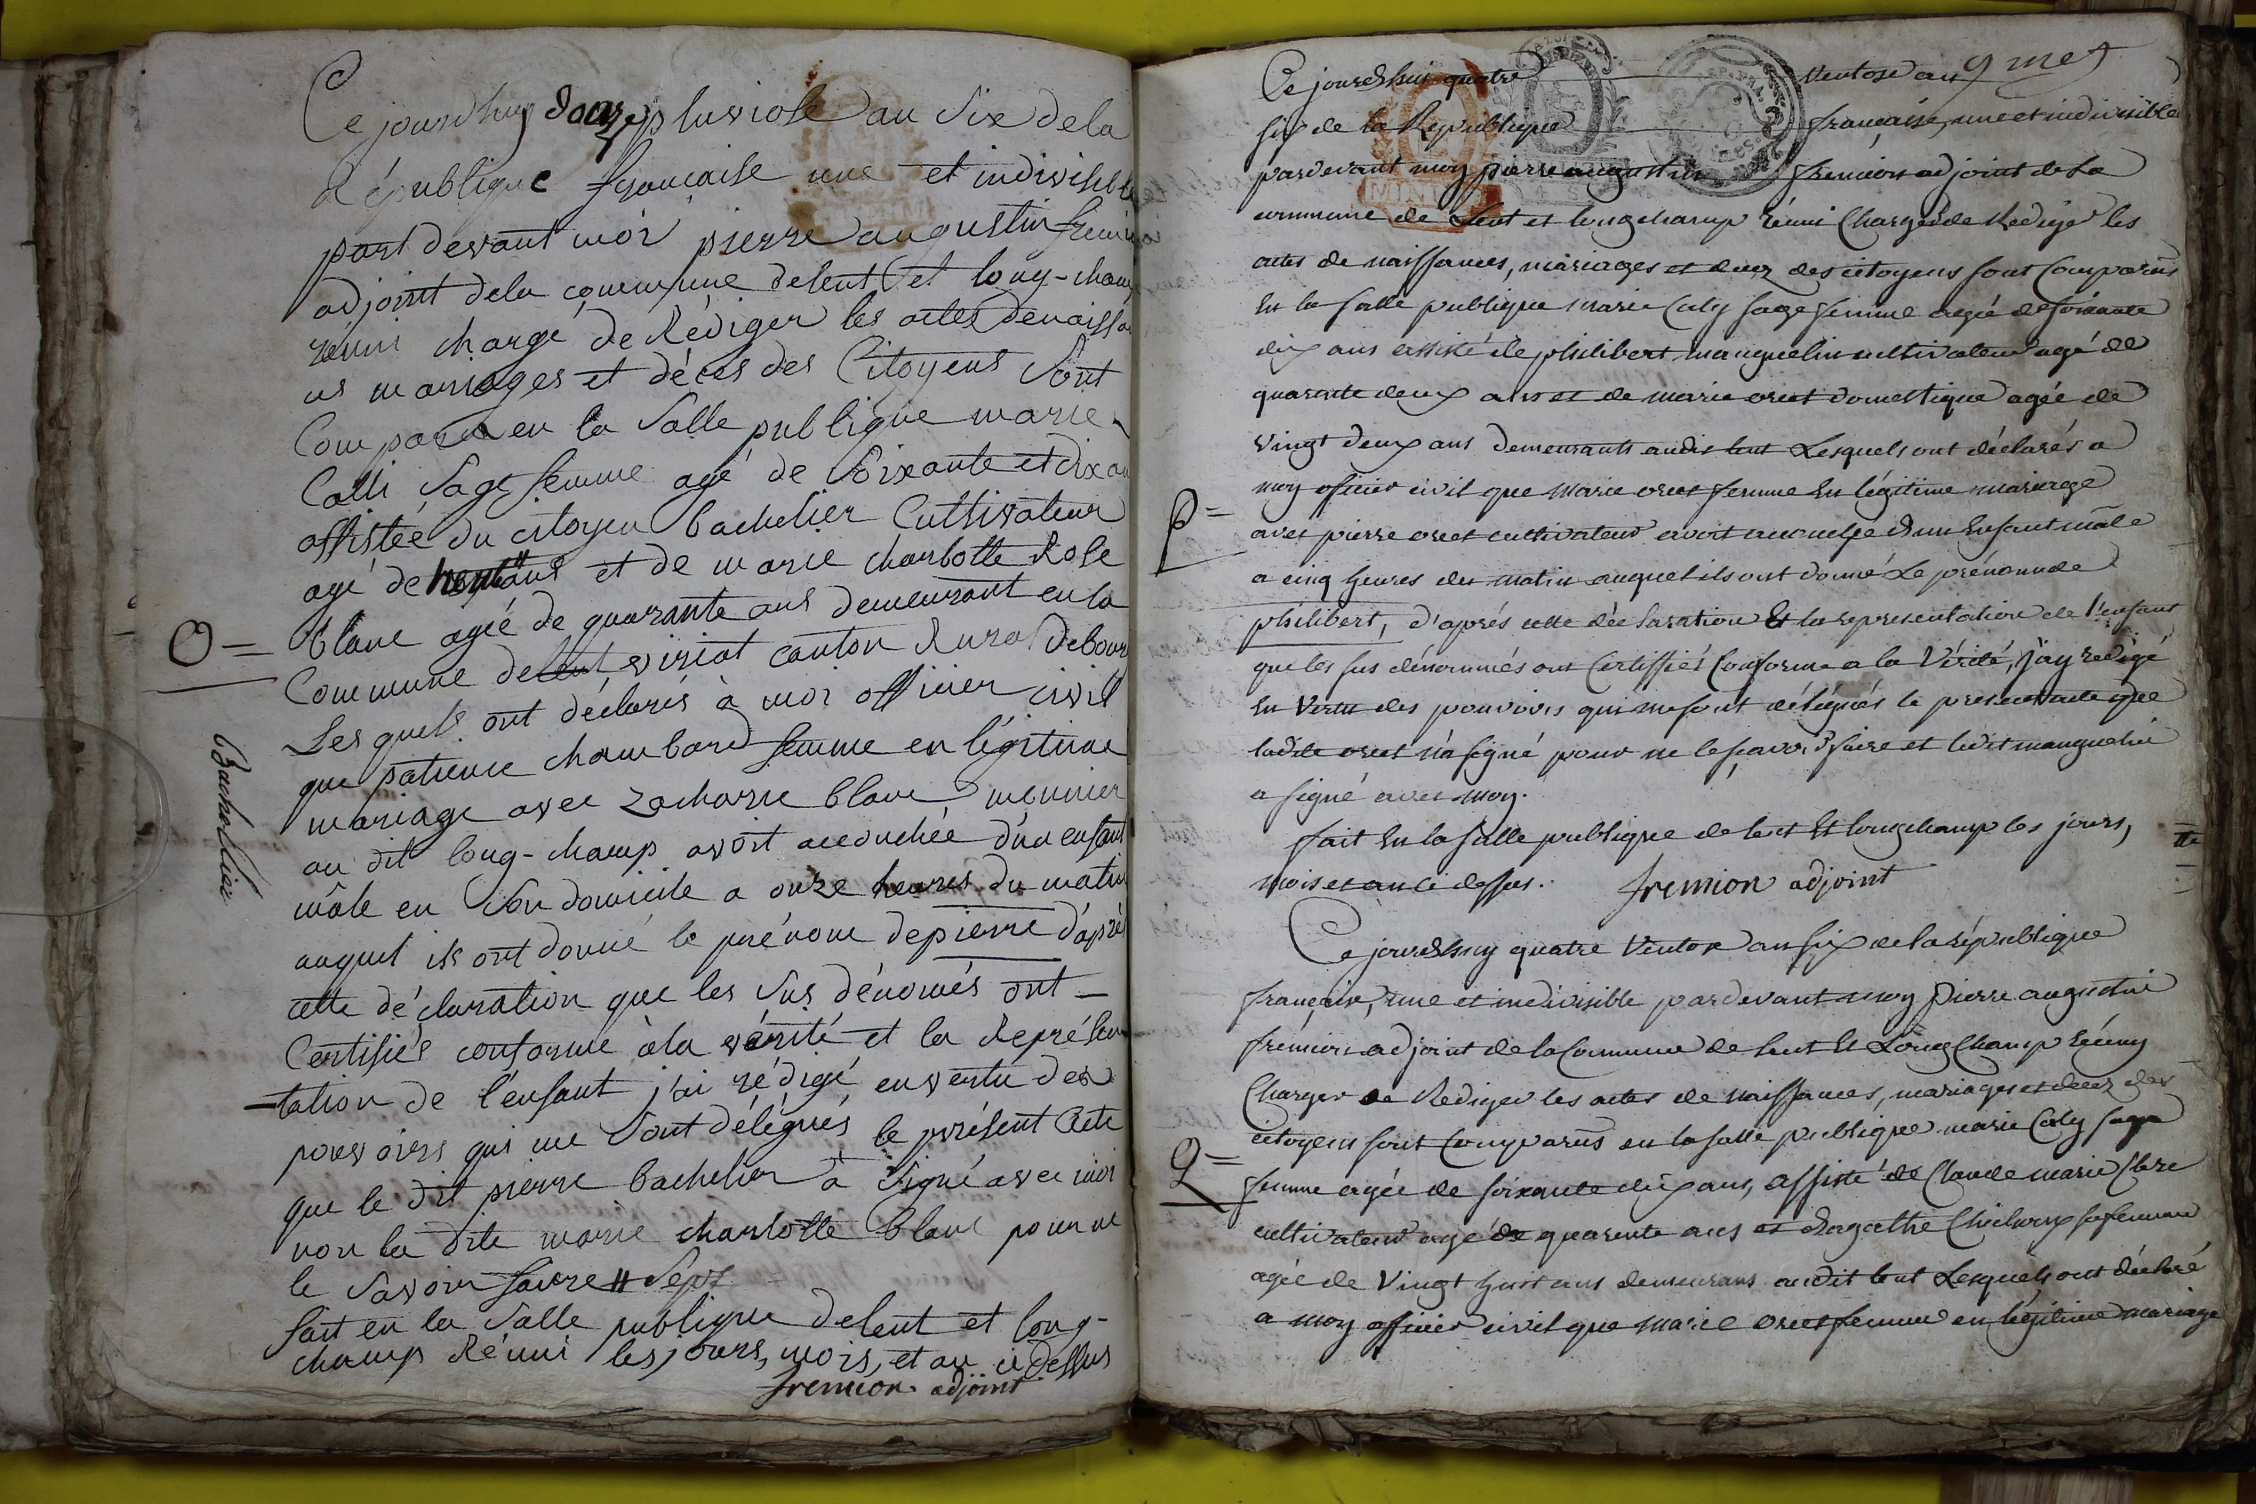 Ce jourdhuy douze pluviose an Six de la
République française une et indivisible
part devant moi pierre augustin frémion
adjoint de la commune de lent et long-champ
réuni chargé de Rédiger les actes de naissan
ces mariages et décès des Citoyens Sont
Comparu en la Salle publique marie
Calli Sage femme agé de Soixante et dix an
assistée du citoyen bachelier Cultivateur
agé de ans et de marie charlotte Rose
blanc agée de quarante ans demeurant en la
O=
Commune de lent, viriat canton Rural de bour
Les quels ont déclarés à moi officier civil
que patience chambard femme en légitime
mariage avec zacharie blanc meunier
au dit long-champ avoit accouchée d'un enfant
mâle en Son domicile a onze heures du matin
auquel ils ont donné le prénom de pierre d'après
cette déclaration que les Sus dénomés ont
Certifiés conforme à la vérité et la Représen
-tation de l'enfant j'ai rédigé en vertu des
pouvoirs qui me Sont délégués le présent Acte
que le dit pierre bachelier a Signé avec moi
non la dite marie charlotte blanc pour ne
le Savoir faire
fait en la Salle publique de lent et long-
champ Réuni les jours, mois, et an ci dessus
fremion adjoint
Bachellier
9 me
Ce jourdhui quatre ventose an
six de la République française, une et indivisible
pardevant moy pierre augustin fremion adjoint de la
commune de Lent et longchamp réuni Chargé de Rediger les
actes de naissances, mariages et decez des citoyens sont Comparus
En la salle publique marie Caly sage femme agée de soixante
dix ans assisté de philibert manguelin cultivateur agé de
quarente deux ans et de marie oret domestique agée de
vingt deux ans demeurants audit lent Lesquels ont déclarés a
moy officier civil que Marie oret femme En légitime mariage
P=
avec pierre oret cultivateur avoit accouchée d'un Enfant mâle
a cinq heures du matin auquel ils ont donné Le prénom de
philibert, d'aprés cette déclaration Et la representation de l'enfant
que les sus dénommés ont Certiffiés Conforme a la Vérité, j'ay redigé
En Vertu des pouvoirs qui me sont délégués le present acte que
ladite oret n'a signé pour ne le sçavoir faire et ledit manguelin
a signé avec moy.
fait En la salle publique de lent Et longchamp les jours,
mois et an ci dessus. fremion adjoint
Ce jourdhuy quatre Ventose an six de la république
française, une et indivisible pardevant moy Pierre augustin
frémion adjoint de la Commune de lent Et Long Champ réuny
Charger de Rediger les actes de naissances, mariages et decez des
citoyens sont Comparus en la salle publique marie Caly sage
Q=
femme agée de soixante dix ans, assisté de Claude marie
cultivateur agé de quarente ans et d'agathe sa femme
agée de Vingt huit ans demeurans audit lent Lesquels ont déclaré
a moy officier civil que marie oret femme en légitime mariage